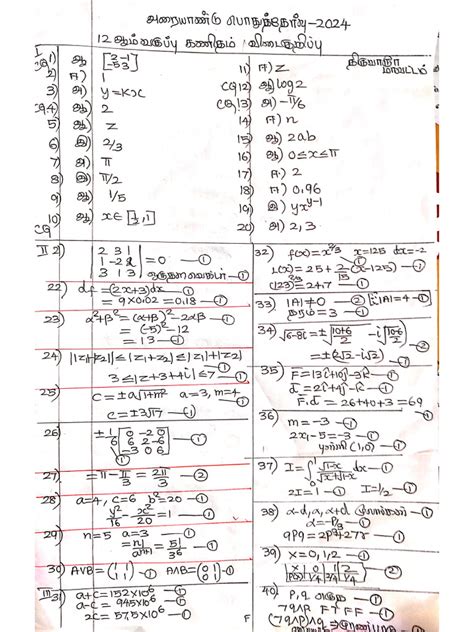 அரையாண்டு பொதுத்தேர்வு - 2024
12 ஆம் வகுப்பு கணிதம் விடைகுறிப்பு
மாவட்டம்
I
1) ஆ [3 -1
-5 3]
2) ஈ) 1
3) அ) y = Kx
4) ஆ) 2
5) அ) z
6) இ) 2/3
7) அ) π
8) இ) π/2
9) அ) 1/5
10) ஆ) x∈[½,1]
11) ஈ) z
12) ஆ) log2
13) அ) -π/6
14) ஈ) n
15) ஆ) 2ab
16) ஆ) 0≤x≤π
17) ஈ) 2
18) ஈ) 0.96
19) இ) yx^(y-1)
20) அ) 2, 3
II
| 2 3 1
1 -2 2
3 1 3 | = 0 - ①
22) df = (2x+3)dx - ①
= 9×0.02 = 0.18 - ①
23) α²+β² = (α+β)² - 2αβ
= (-5)² - 12
= 13 - ①
24) ||z₁|-|z₂|| ≤ |z₁+z₂| ≤ |z₁|+|z₂|
3 ≤ |z+3+4i| ≤ 7 - ①
25) c = ±a√1+m² a=3, m=4
c = ±3√17 - ①
26) ± 1/6 [0 -2 0
6 2 -6
-3 0 6]
27) = π - π/3 = 2π/3 - ②
28) a=4, c=6 b²=20 - ①
y²/16 - x²/20 = 1 - ①
29) n=5 a=3 - ①
= n!/a^(n+1) = 5!/3⁶ - ①
30) A∨B = (1 1
1 1) - ① A∧B = (0 0
0 1) - ①
III 31) a+c = 152×10⁶ - ①
a-c = 94.5×10⁶ - ①
2c = 57.5×10⁶ - ①
32) f(x) = x^(2/3) x=125 dx=-2
L(x) = 25 + 2/15 (x-125) - ①
33) |A| ≠ 0 - ② |A| = 4 - ①
தரம் = 3 - ①
34) √6-8i = ± [√(10+6)/2 - i√(10-6)/2]
= ±(2√2 - i√2) - ①
35) F = 13i+10j-3k - ①
d = 2i+4j-k - ①
F.d = 26+40+3 = 69 - ①
36) m = -3 - ①
2x₁-5 = -3 - ①
புள்ளி (1,0) - ①
37) I = ∫ √1-x / √x+√1-x dx - ①
2I = 1 - ① I = 1/2 - ①
38) α-d, α, α+d
α = -P/3 - ①
9Pq = 2P³+27r - ①
39) X = 0, 1, 2 - ①
x | 0 | 1 | 2
P(x) | 1/4 | 2/4 | 1/4 - ②
40) P, q